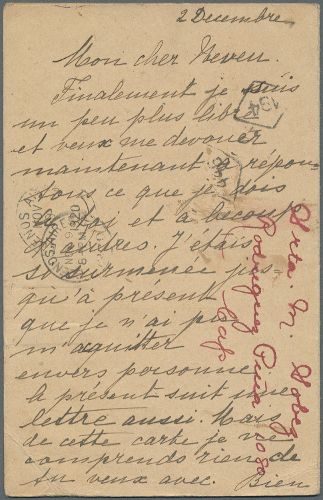 2 Decembre
Mon cher Neveu.
Finalement je suis
un peu plus libre
et veux me devouer
maintenant a répon-
tous ce que je dois
a toi et a beaucoup
d'autres. J'étais
si surmenee jus-
qu'à présent
que je n'ai pu
m'aquitter
envers personne
a présent suit une
lettre aussi. Mais
de cette carte je ne
comprends rien de
tu veux avec. Bien
194
Srta. M. Sobezoso
Rodriguez Piña